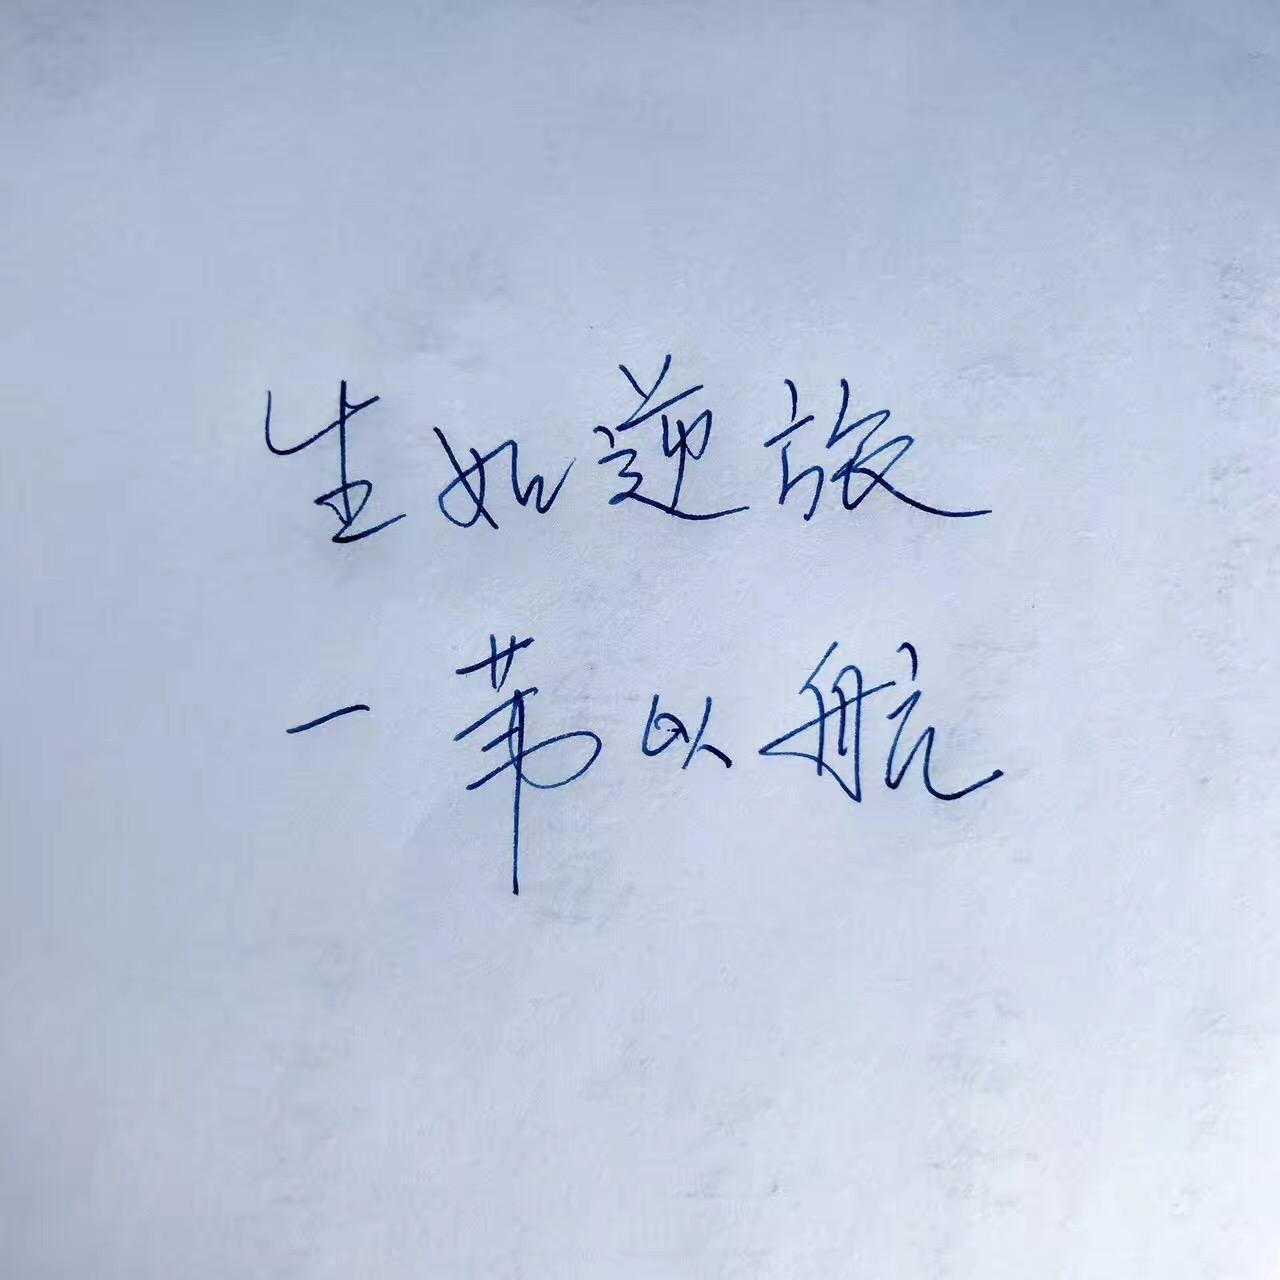 生如逆旅
一苇以航